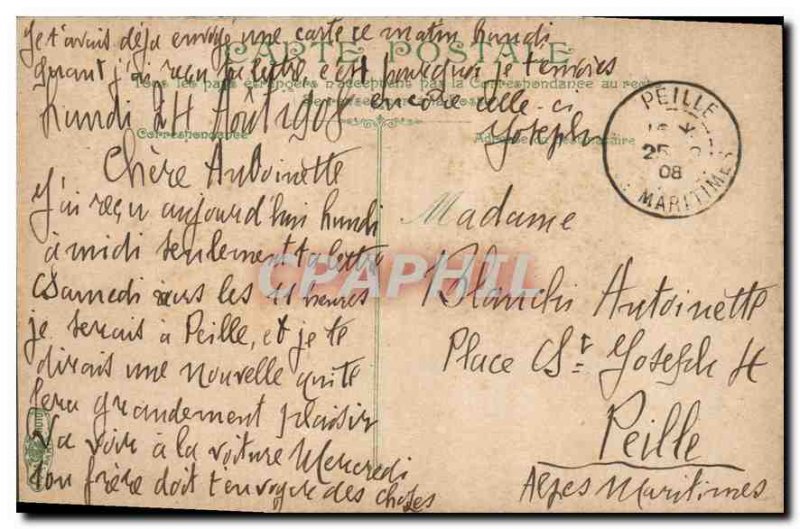 Je t'avais déja envoyé une carte ce matin lundi
CARTE POSTALE
quant j'ai reçu ta lettre, c'est pourquoi je t'envoies
Tous les pays étrangers n'acceptent pas la Correspondance au recto
encore celle-ci
Joseph
Lundi 24 Août 1908
Correspondance
Chère Antoinette
J'ai reçu aujourd'hui lundi
à midi seulement ta lettre
Samedi vers les 11 heures
je serais à Peille, et je te
dirais une nouvelle qui te
fera grandement plaisir
Va voir à la voiture Mercredi
ton frère doit t'envoyer des choses
PEILLE
25
08
MARITIMES
Madame
Blanchi Antoinette
Place St Joseph H
Peille
Alpes Maritimes
CPAPHIL